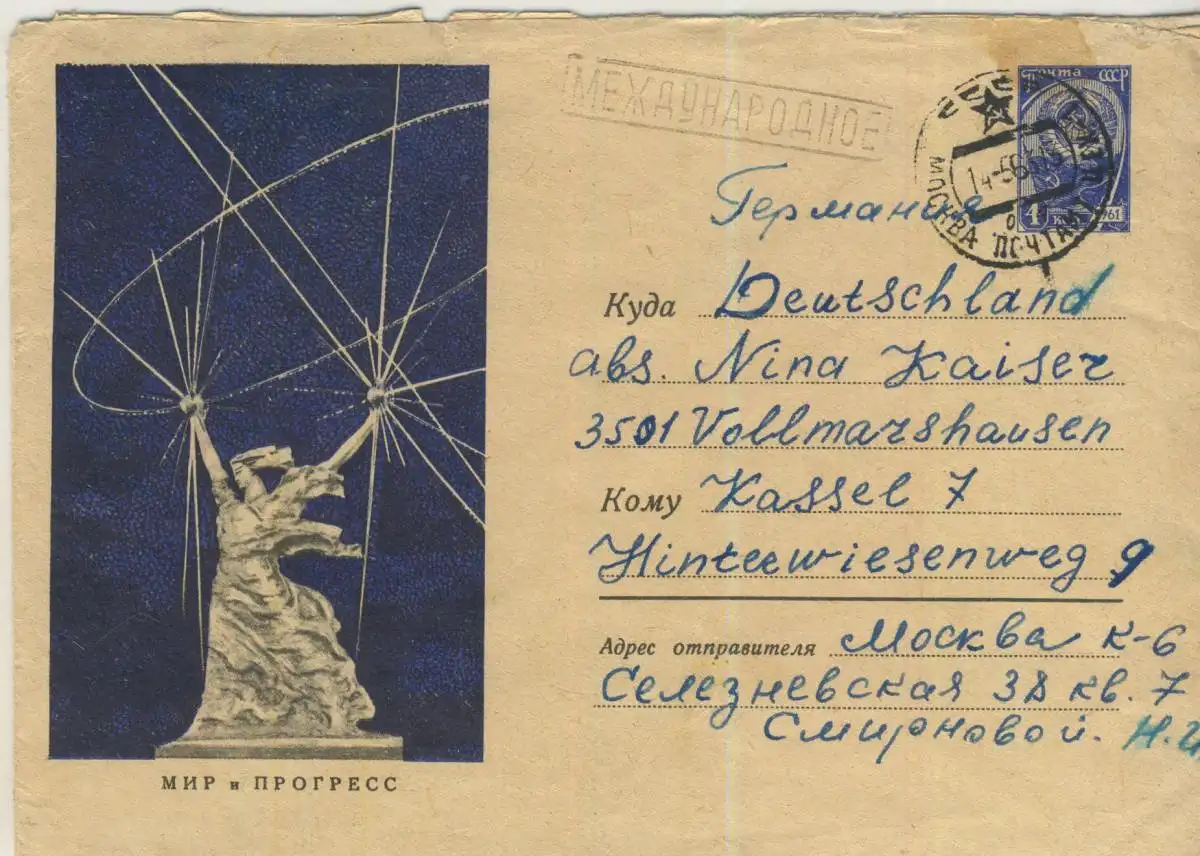 МЕЖДУНАРОДНОЕ
почта СССР
4 коп. 1961
МОСКВА ПОЧТАМТ
Германия
Куда Deutschland
abs. Nina Kaiser
3501 Vollmarshausen
Кому Kassel 7
Hinterwiesenweg 9
Адрес отправителя Москва К-6
Селезневская 38 кв. 7
Смирновой. Н.
МИР и ПРОГРЕСС